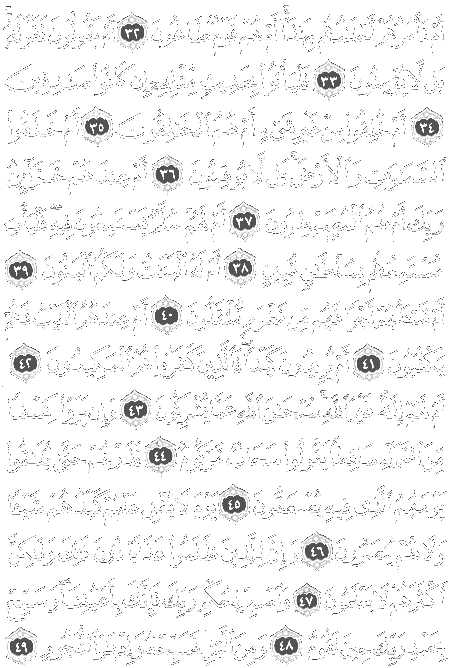 أَمْ تَأْمُرُهُمْ أَحْلَٰمُهُم بِهَٰذَآ أَمْ هُمْ قَوْمٌ طَاغُونَ ٣٢ أَمْ يَقُولُونَ تَقَوَّلَهُۥ
بَل لَّا يُؤْمِنُونَ ٣٣ فَلْيَأْتُوا۟ بِحَدِيثٍ مِّثْلِهِۦٓ إِن كَانُوا۟ صَٰدِقِينَ
٣٤ أَمْ خُلِقُوا۟ مِنْ غَيْرِ شَىْءٍ أَمْ هُمُ ٱلْخَٰلِقُونَ ٣٥ أَمْ خَلَقُوا۟
ٱلسَّمَٰوَٰتِ وَٱلْأَرْضَ بَل لَّا يُوقِنُونَ ٣٦ أَمْ عِندَهُمْ خَزَآئِنُ
رَبِّكَ أَمْ هُمُ ٱلْمُصَۣيْطِرُونَ ٣٧ أَمْ لَهُمْ سُلَّمٌ يَسْتَمِعُونَ فِيهِ فَلْيَأْتِ
مُسْتَمِعُهُم بِسُلْطَٰنٍ مُّبِينٍ ٣٨ أَمْ لَهُ ٱلْبَنَٰتُ وَلَكُمُ ٱلْبَنُونَ ٣٩
أَمْ تَسْـَٔلُهُمْ أَجْرًا فَهُم مِّن مَّغْرَمٍ مُّثْقَلُونَ ٤٠ أَمْ عِندَهُمُ ٱلْغَيْبُ فَهُمْ
يَكْتُبُونَ ٤١ أَمْ يُرِيدُونَ كَيْدًا فَٱلَّذِينَ كَفَرُوا۟ هُمُ ٱلْمَكِيدُونَ ٤٢
أَمْ لَهُمْ إِلَٰهٌ غَيْرُ ٱللَّهِ سُبْحَٰنَ ٱللَّهِ عَمَّا يُشْرِكُونَ ٤٣ وَإِن يَرَوْا۟ كِسْفًا
مِّنَ ٱلسَّمَآءِ سَاقِطًا يَقُولُوا۟ سَحَابٌ مَّرْكُومٌ ٤٤ فَذَرْهُمْ حَتَّىٰ يُلَٰقُوا۟
يَوْمَهُمُ ٱلَّذِى فِيهِ يُصْعَقُونَ ٤٥ يَوْمَ لَا يُغْنِى عَنْهُمْ كَيْدُهُمْ شَيْـًٔا
وَلَا هُمْ يُنصَرُونَ ٤٦ وَإِنَّ لِلَّذِينَ ظَلَمُوا۟ عَذَابًا دُونَ ذَٰلِكَ وَلَٰكِنَّ
أَكْثَرَهُمْ لَا يَعْلَمُونَ ٤٧ وَٱصْبِرْ لِحُكْمِ رَبِّكَ فَإِنَّكَ بِأَعْيُنِنَا وَسَبِّحْ
بِحَمْدِ رَبِّكَ حِينَ تَقُومُ ٤٨ وَمِنَ ٱلَّيْلِ فَسَبِّحْهُ وَإِدْبَٰرَ ٱلنُّجُومِ ٤٩